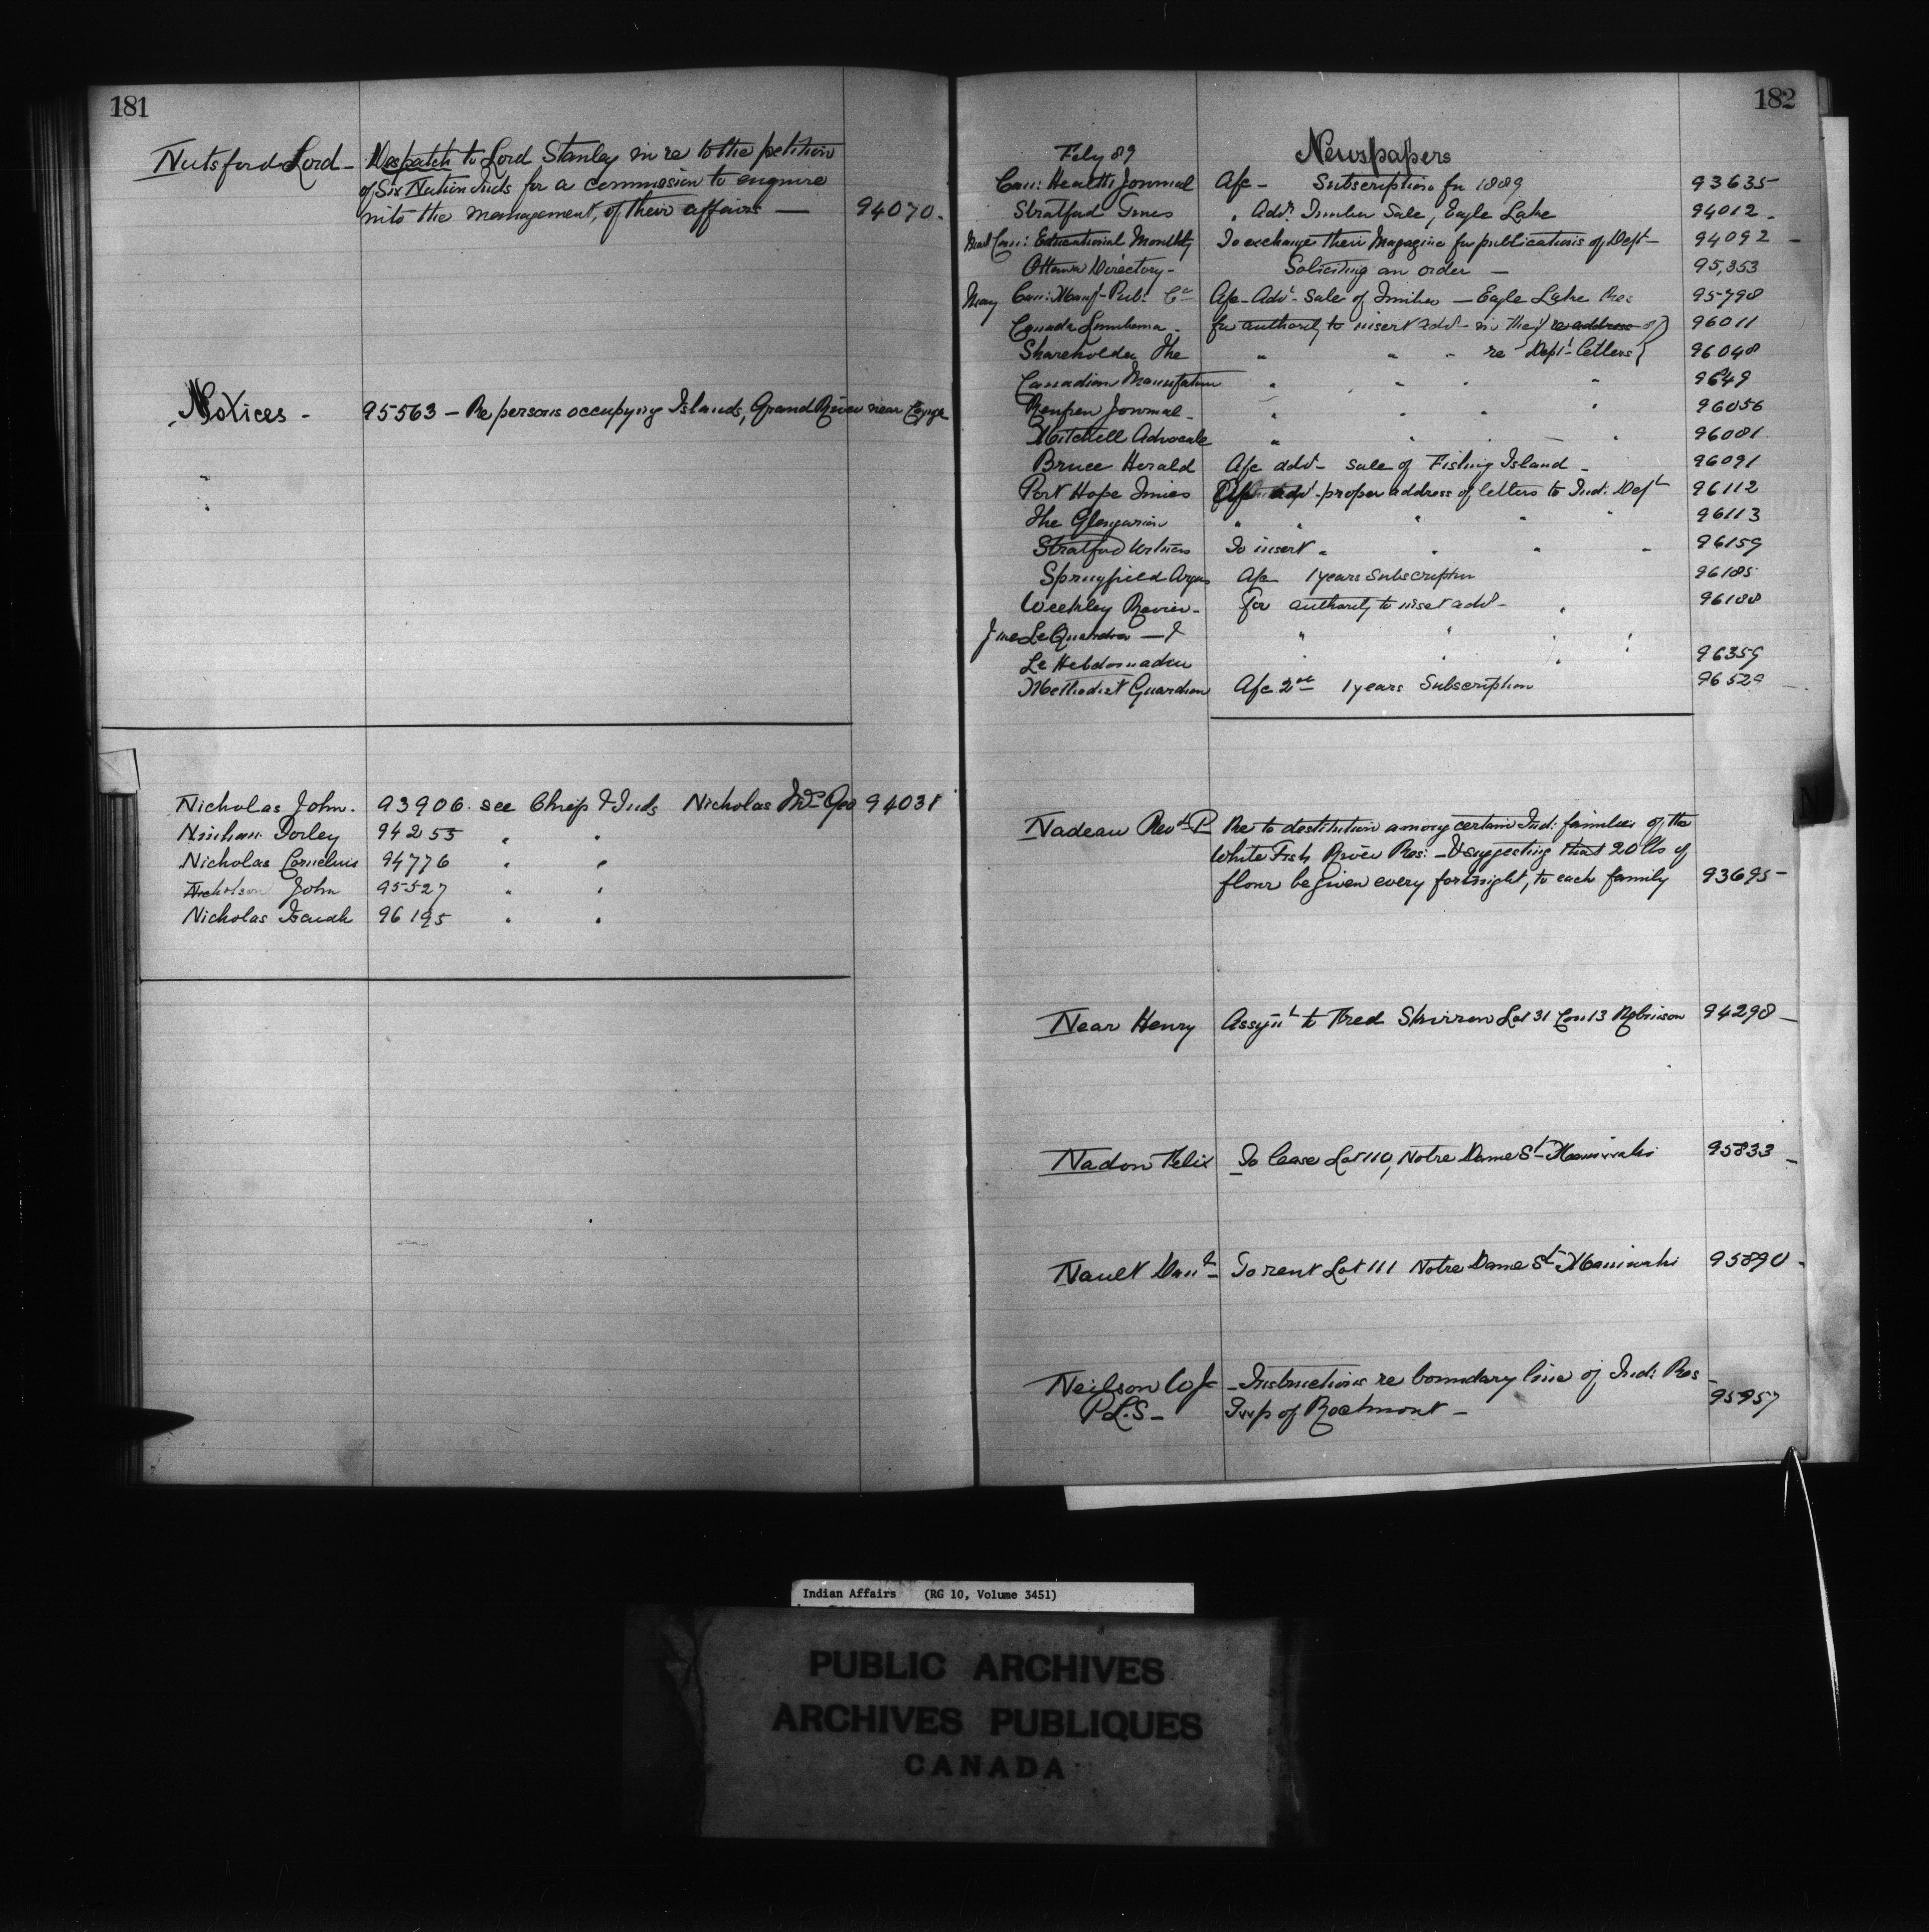 181
Nutsford Lord - Despatch to Lord Stanley in re to the petition
of Six Nation Inds for a commission to enquire
into the management, of their affairs — 94070.
Notices - 95563 - Re persons occupying Islands, Grand River near Cayuga
Nicholas John. 93906. see Chief & Inds Nicholas Geo 94031
Dorley 94255 " "
Nicholas Cornelius 94776 " "
Nicholson John 95527 " "
Nicholas Isaiah 96195 " "
182
Feby 89 Newspapers
Can: Health Journal A/c - Subscription for 1889 93635
Stratford Times " Advt. Timber Sale, Eagle Lake 94012 -
Can: Educational Monthly To exchange their Magazine for publications of Dept - 94092 -
Ottawa Directory - Soliciting an order — 95,353
May Can: Manf- Pub: Co A/c - Advt - Sale of Timber - Eagle Lake Res 95798
Canada Lumberman - for authority to insert advt - in the re address of 96011
Shareholder The " " " re Dept - letters 96048
Canadian Manufacturer " " " " 9649
Renfrew Journal - " " " " 96056
Mitchell Advocate " " " " 96081
Bruce Herald A/c advt - sale of Fishing Island - 96091
Port Hope Times A/c advt - proper address of letters to Ind: Dept 96112
The Glengarian " " " " " 96113
Stratford To insert " " " " 96159
Springfield Argus A/c 1 years Subscription 96185
Weekley Review - for authority to insert advt - " 96188
" " " "
Le Hebdomadaire " " " 96359
Methodist Guardian A/c 2nd 1 years Subscription 96529 -
Nadeau Revd P Re to destitution among certain Ind: families of the
White Fish River Res: - & suggesting that 20 lbs of
flour be given every fortnight, to each family 93695 -
Near Henry Assgnt to Fred Skirren Lot 31 Con 13 Robinson 94298 -
Nadon Felix To lease Lot 110, Notre Dame St - Maniwaki 95833 -
Nault Danl - To rent Lot 111 Notre Dame St - Maniwaki 95890 -
Neilson W J - Instructions re boundary line of Ind: Res -
P.L.S - Twp of Rocmont - 95957
N
Indian Affairs (RG 10, Volume 3451)
PUBLIC ARCHIVES
ARCHIVES PUBLIQUES
CANADA